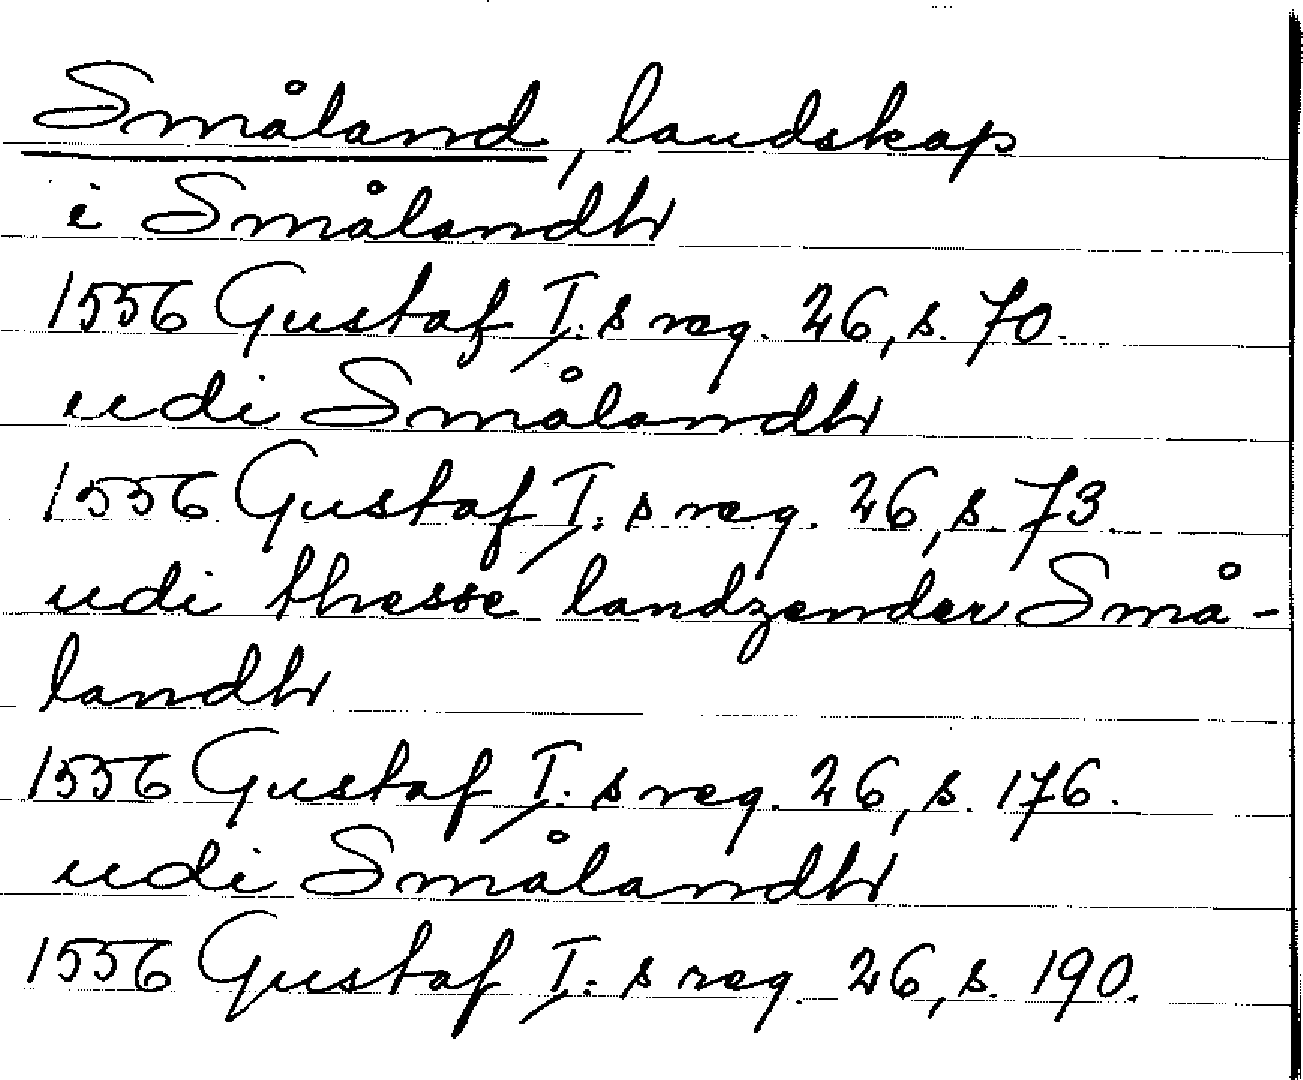 Småland, landskap
i Smålandh
1556 Gustaf I:s reg. 26, s. 70.
udi Smålandh
1556 Gustaf I:s reg. 26, s. 73.
udi thesse landzender Små-
landh
1556 Gustaf I:s reg. 26, s. 176.
udi Smålandh
1556 Gustaf I:s reg. 26, s. 190.